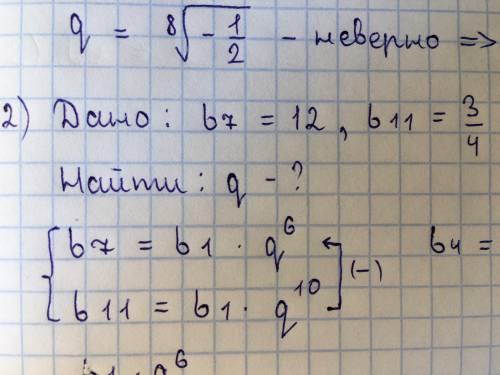 q = ⁸√(-1/2) - неверно =>
2) Дано: b7 = 12, b11 = 3/4
Найти: q - ?
{ b7 = b1 · q⁶
b11 = b1 · q¹⁰ ] (-)
b4 =
b1 · q⁶